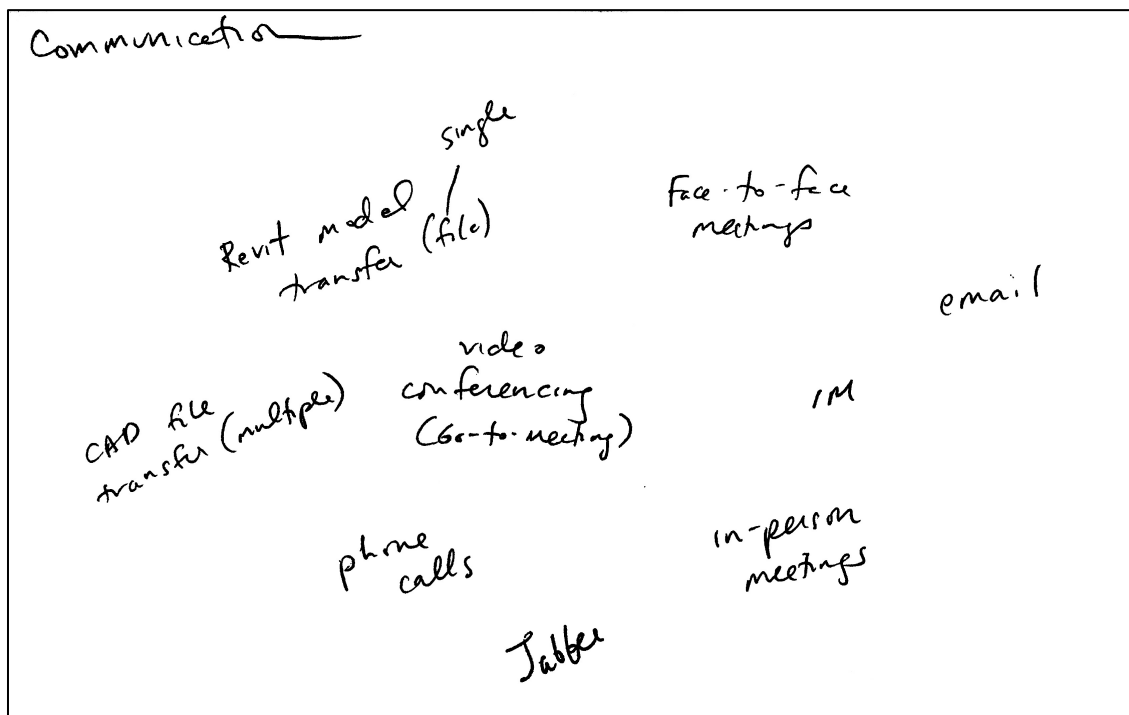 Communication
single
Revit model
transfer (file)
Face-to-face
meetings
email
video
conferencing
(Go-to-meeting)
IM
CAD file
transfer (multiple)
phone
calls
in-person
meetings
Jabber